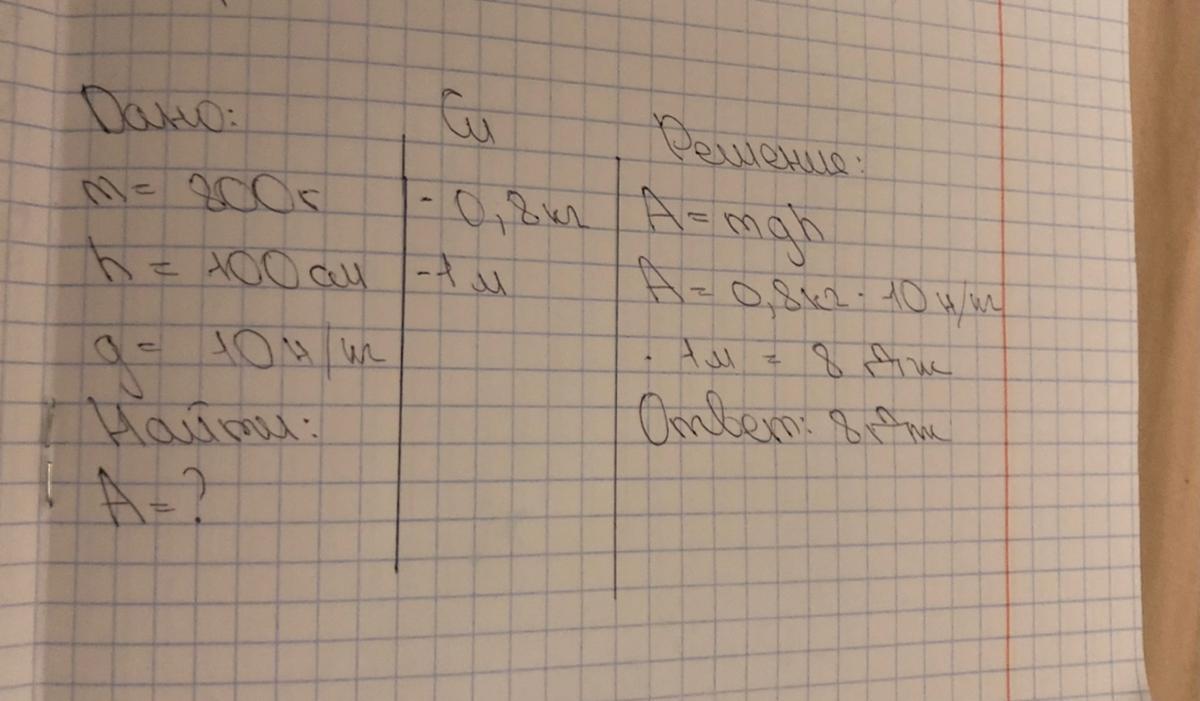 Дано:
m = 800г
h = 100 см
g = 10 н/кг
Найти:
A = ?
Си
- 0,8 кг
- 1 м
Решение:
A = mgh
A = 0,8 кг · 10 н/кг
· 1 м = 8 Дж
Ответ: 8 Дж